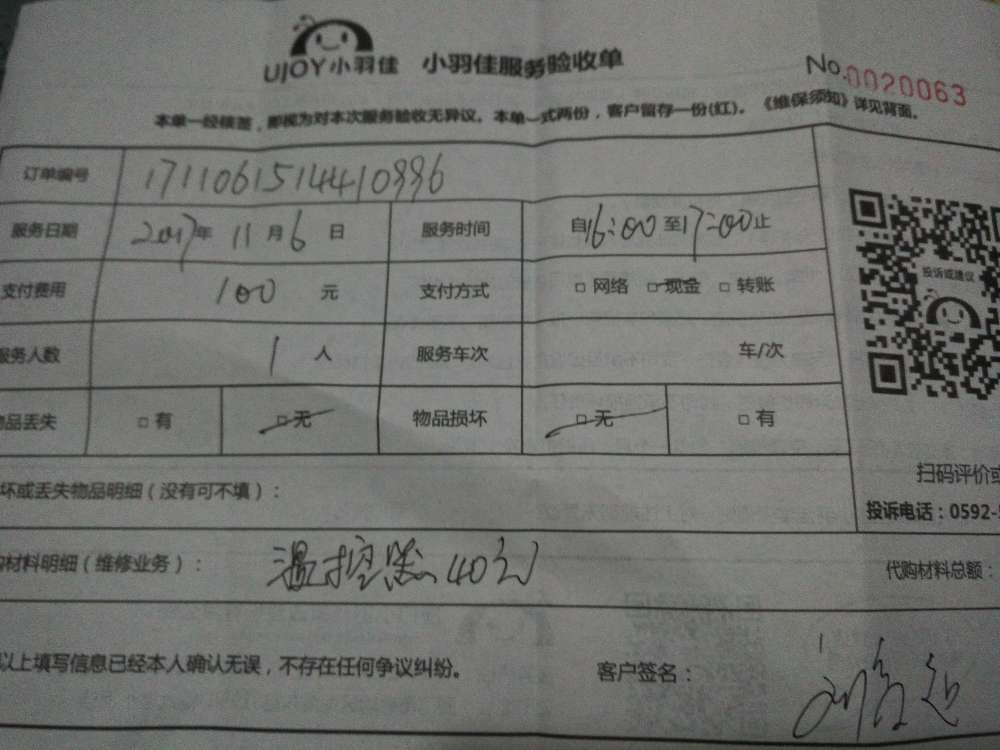 UJOY小羽佳 小羽佳服务验收单
No.0020063
本单一经核签,即视为对本次服务验收无异议。本单一式两份,客户留存一份(红)。《维保须知》详见背面。
订单编号 17110615144410996
服务日期 2017年 11月6日 服务时间 自16:00至17:00止
支付费用 100 元 支付方式 □ 网络 □ 现金 □ 转账
服务人数 1 人 服务车次 车/次
物品丢失 □ 有 □ 无 物品损坏 □ 无 □ 有
投诉或建议
坏或丢失物品明细(没有可不填):
扫码评价或
投诉电话:0592-
购材料明细(维修业务): 温控器40元
代购材料总额:
以上填写信息已经本人确认无误,不存在任何争议纠纷。 客户签名: